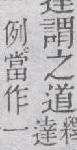 謂之道
釋
達
例當作一